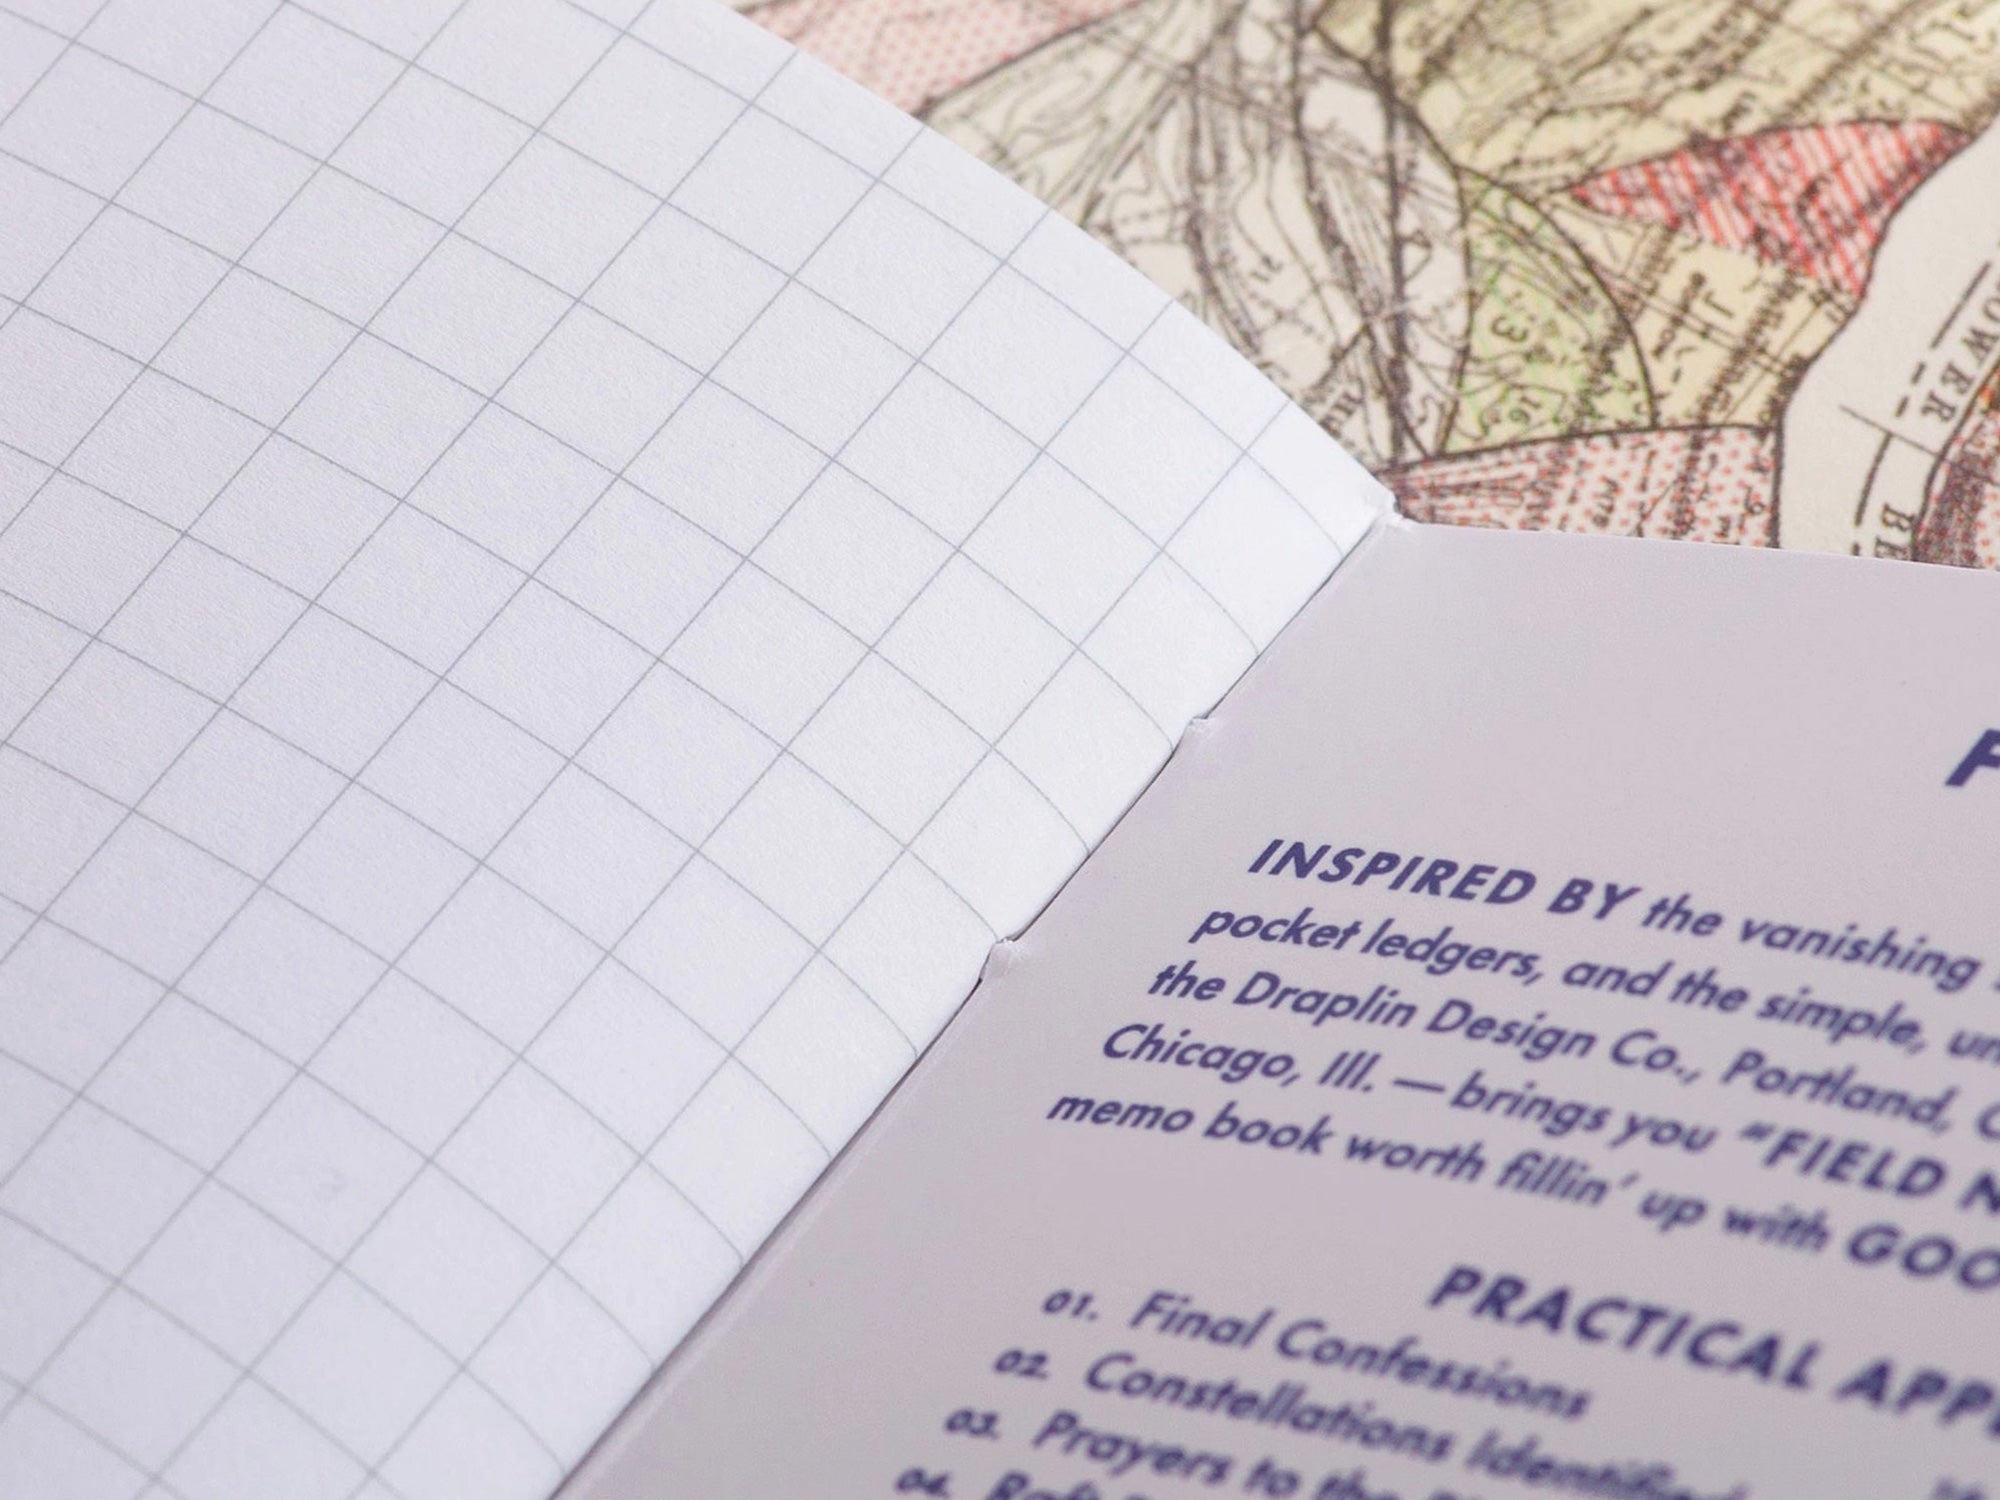 INSPIRED BY the vanishing
pocket ledgers, and the simple, un
the Draplin Design Co., Portland, O
Chicago, Ill. — brings you “FIELD N
memo book worth fillin’ up with GOO
PRACTICAL APPL
01. Final Confessions
02. Constellations Identified
03. Prayers to the
04. Raft
OWER
BE
13
16